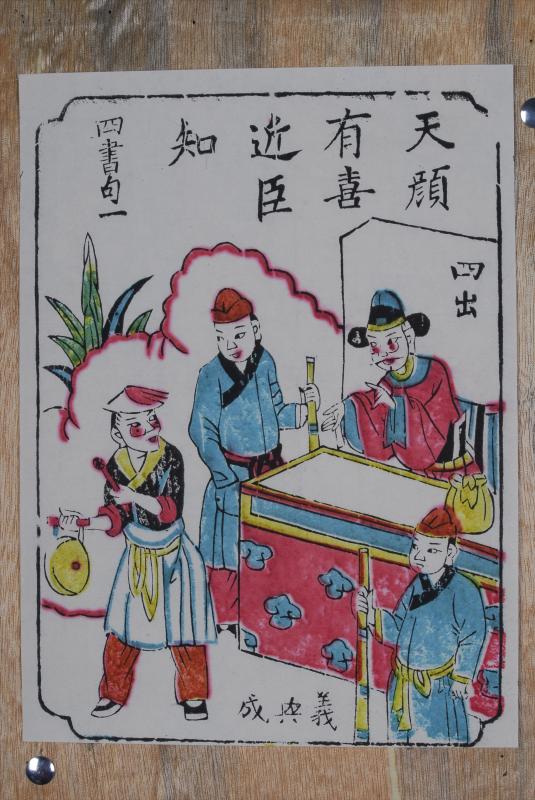 天顔
有喜
近臣
知
四書句一
四出
義興成